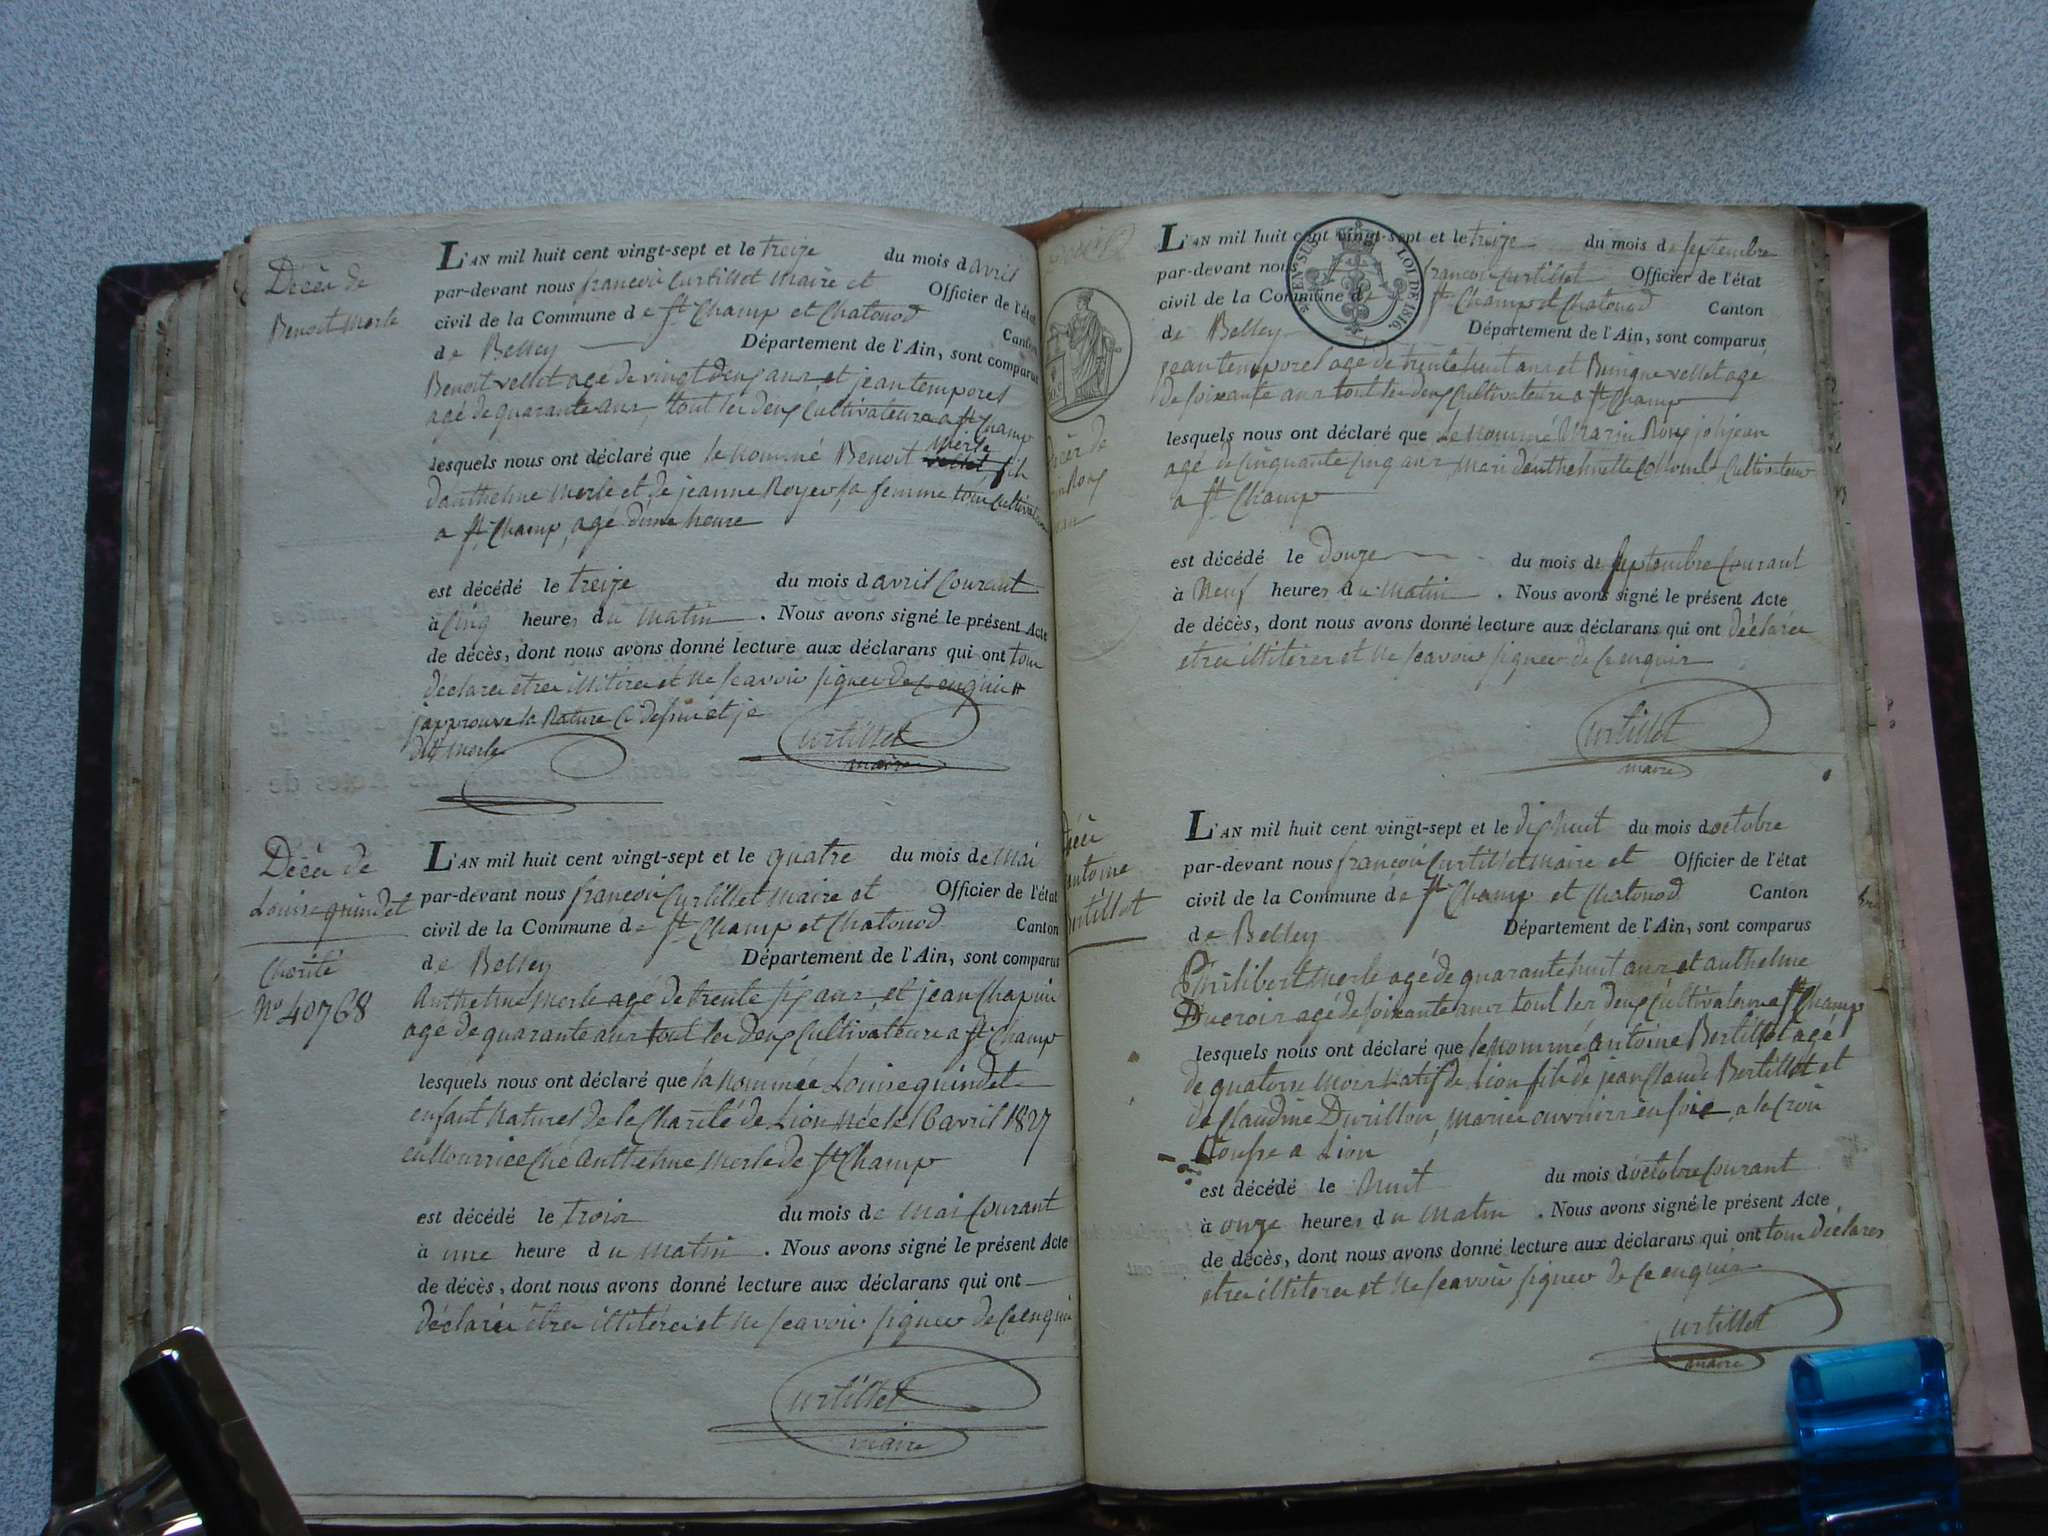 Décès de
Benoit Merle
L'AN mil huit cent vingt-sept et le treize du mois d avril
par-devant nous françois Curtillet Maire et Officier de l'état
civil de la Commune de St Champ et Chatonod Canton
de Belley Département de l'Ain, sont comparus
Benoit vellet agé de vingt deux ans et jean tempores
agé de quarante ans, tout les deux Cultivateurs a St Champ
lesquels nous ont déclaré que le nommé Benoit Merle vellet fils
d'anthelme Merle et de jeanne Royer sa femme tous cultivateurs
a St Champ, agé d'une heure
est décédé le treize du mois d avril Courant
à Cinq heures du Matin. Nous avons signé le présent Acte
de décès, dont nous avons donné lecture aux déclarans qui ont tous
déclarés etres illitérés et ne scavoir signer de ce enquis
japprouve la Rature Ci dessus et je
dit Merle
Curtillet
maire
Décès de
Louise guindet
Charité
No 40768
L'AN mil huit cent vingt-sept et le quatre du mois de Mai
par-devant nous françois Curtillet Maire et Officier de l'état
civil de la Commune de St Champ et Chatonod Canton
de Belley Département de l'Ain, sont comparus
Anthelme Merle agé de trente six ans, et jean Chapuis
agé de quarante ans tout les deux Cultivateurs a St Champ
lesquels nous ont déclaré que la Nommée Louise guindet
enfant Naturel de la Charité de Lion Née le 16 avril 1827
en Nourrice Ché Anthelme Merle de St Champ
est décédé le trois du mois de Mai Courant
à une heure du Matin. Nous avons signé le présent Acte
de décès, dont nous avons donné lecture aux déclarans qui ont
déclarés êtres illitérés et ne scavoir signer de ce enquis
Curtillet
maire
TIMBRE
EN SUS
LOI DE 1816.
L'AN mil huit cent vingt-sept et le treize du mois de septembre
par-devant nous françois Curtillet Officier de l'état
civil de la Commune de St Champ et Chatonod Canton
de Belley Département de l'Ain, sont comparus
jean tempores agé de trente huit ans et Benigne vellet agé
de soixante ans tout les deux Cultivateurs a St Champ
lesquels nous ont déclaré que le nommé Marin Roux joli jean
agé de Cinquante Cinq ans Mari d'anthelmette Cultivateur
a St Champ
est décédé le douze du mois de septembre Courant
à Neuf heures du Matin. Nous avons signé le présent Acte
de décès, dont nous avons donné lecture aux déclarans qui ont déclarés
etres illiterés et ne scavoir signer de ce enquis
Curtillet
maire
antoine
L'AN mil huit cent vingt-sept et le dix huit du mois d octobre
par-devant nous françois Curtillet maire et Officier de l'état
civil de la Commune de St Champ et Chatonod Canton
de Belley Département de l'Ain, sont comparus
Philibert Merle agé de quarante huit ans et anthelme
Ducroir agé de soixante ans tout les deux Cultivateurs St Champ
lesquels nous ont déclaré que le nommé antoine Bertillot agé
de quatorse Mois Natif de Lion fils de jean Claude Bertillot et
de Claudine Durillon, mariés ouvriers en soie a la Croix
Rousse a Lion
est décédé le huit du mois d octobre Courant
à onze heures du Matin. Nous avons signé le présent Acte
de décès, dont nous avons donné lecture aux déclarans qui ont tous déclarés
etres illiterés et ne scavoir signer de ce enquis
Curtillet
maire